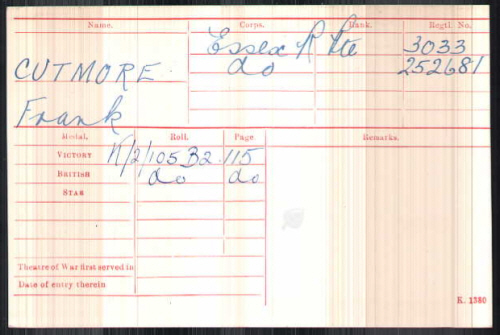 Name. Corps. Rank. Regtl. No.
Essex R Pte 3033
CUTMORE. do 252681
Frank
Medal. Roll. Page. Remarks.
VICTORY K/2/105B2 115
BRITISH do do
STAR
Theatre of War first served in
Date of entry therein
K. 1380